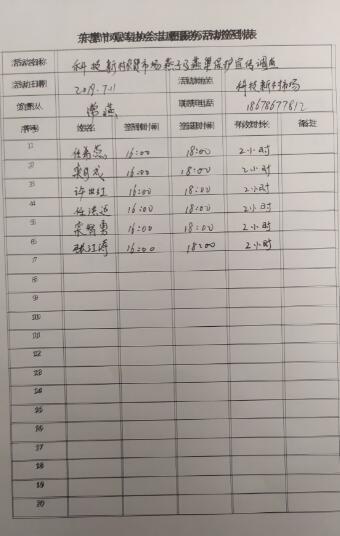 东营市观鸟协会志愿服务活动签到表
活动名称 科技新村贸市场燕子及燕巢保护宣传调查
活动日期 2019.7.21 活动地点 科技新村市场
负责人 常燕 联系电话 18678677812
序号 姓名 签到时间 签退时间 有效时长 备注
1 16:00 18:00 2小时
2 16:00 18:00 2小时
3 许世红 16:00 18:00 2小时
4 16:00 18:00 2小时
5 宋智勇 16:00 18:00 2小时
6 张江涛 16:00 18:00 2小时
7
8
9
10
11
12
13
14
15
16
17
18
19
20